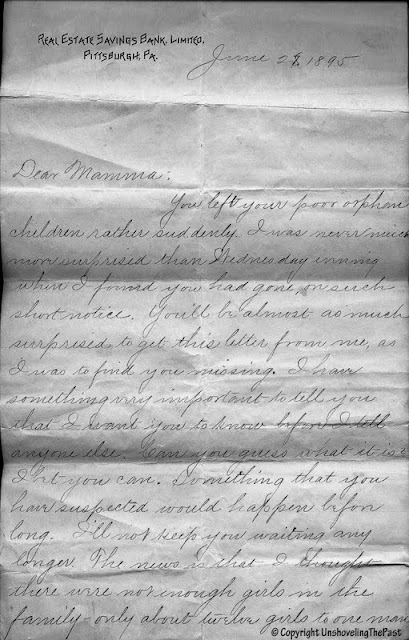 REAL ESTATE SAVINGS BANK, LIMITED,
PITTSBURGH, PA.
June 29, 1895
Dear Mamma:
You left your poor orphan
children rather suddenly. I was never much
more surprised than Wednesday evening
when I found you had gone on such
short notice. You'll be almost as much
surprised to get this letter from me, as
I was to find you missing. I have
something very important to tell you
that I want you to know before I tell
anyone else. Can you guess what it is?
I bet you can. Something that you
have suspected would happen before
long. I'll not keep you waiting any
longer. The news is that I thought
there were not enough girls in the
family - only about twelve girls to one man
© Copyright UnshovelingThePast